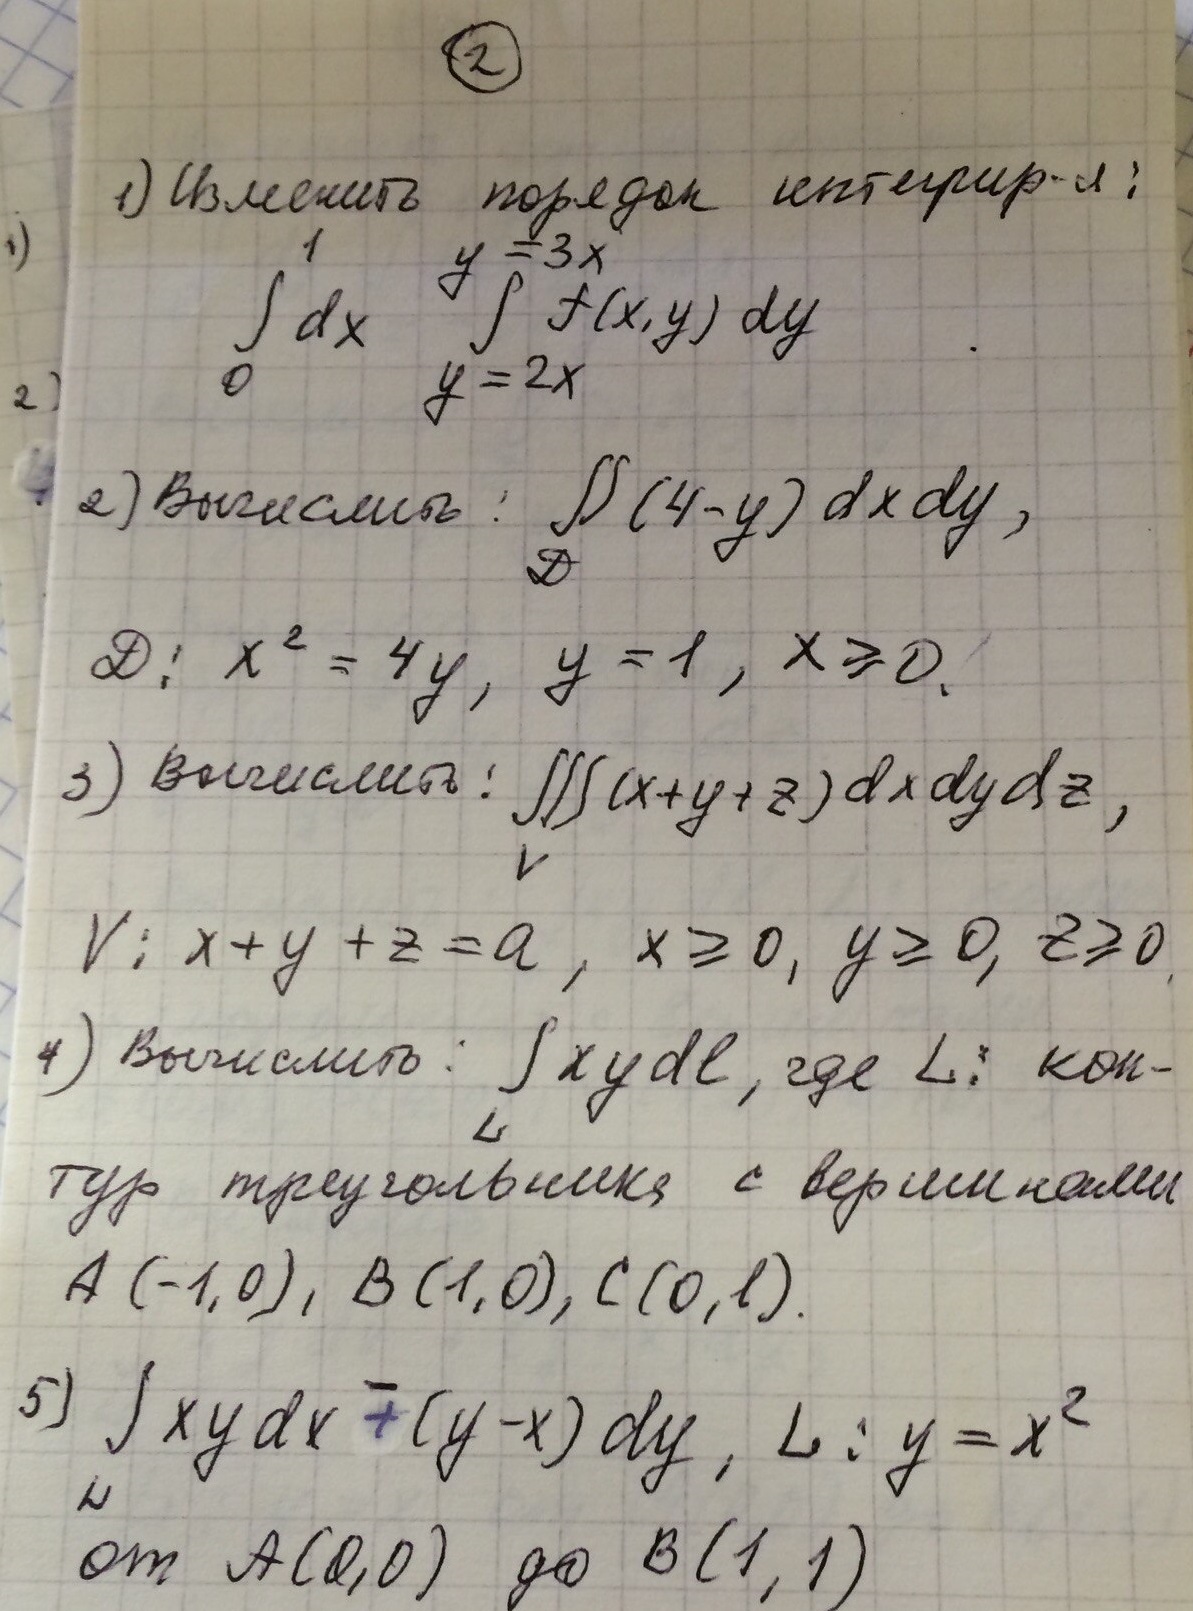 2
1) Изменить порядок интегрир-я:
1 y = 3x
∫ dx ∫ f(x,y) dy
0 y = 2x
2) Вычислить: ∬ (4-y) dx dy,
D
D: x² = 4y, y = 1, x ≥ 0.
3) Вычислить: ∭ (x+y+z) dx dy dz,
V
V: x+y+z = a, x ≥ 0, y ≥ 0, z ≥ 0.
4) Вычислить: ∫ xy dl, где L: кон-
L
тур треугольника с вершинами
A(-1,0), B(1,0), C(0,1).
5) ∫ xy dx + (y-x) dy, L: y = x²
L
от A(0,0) до B(1,1)
1)
2)